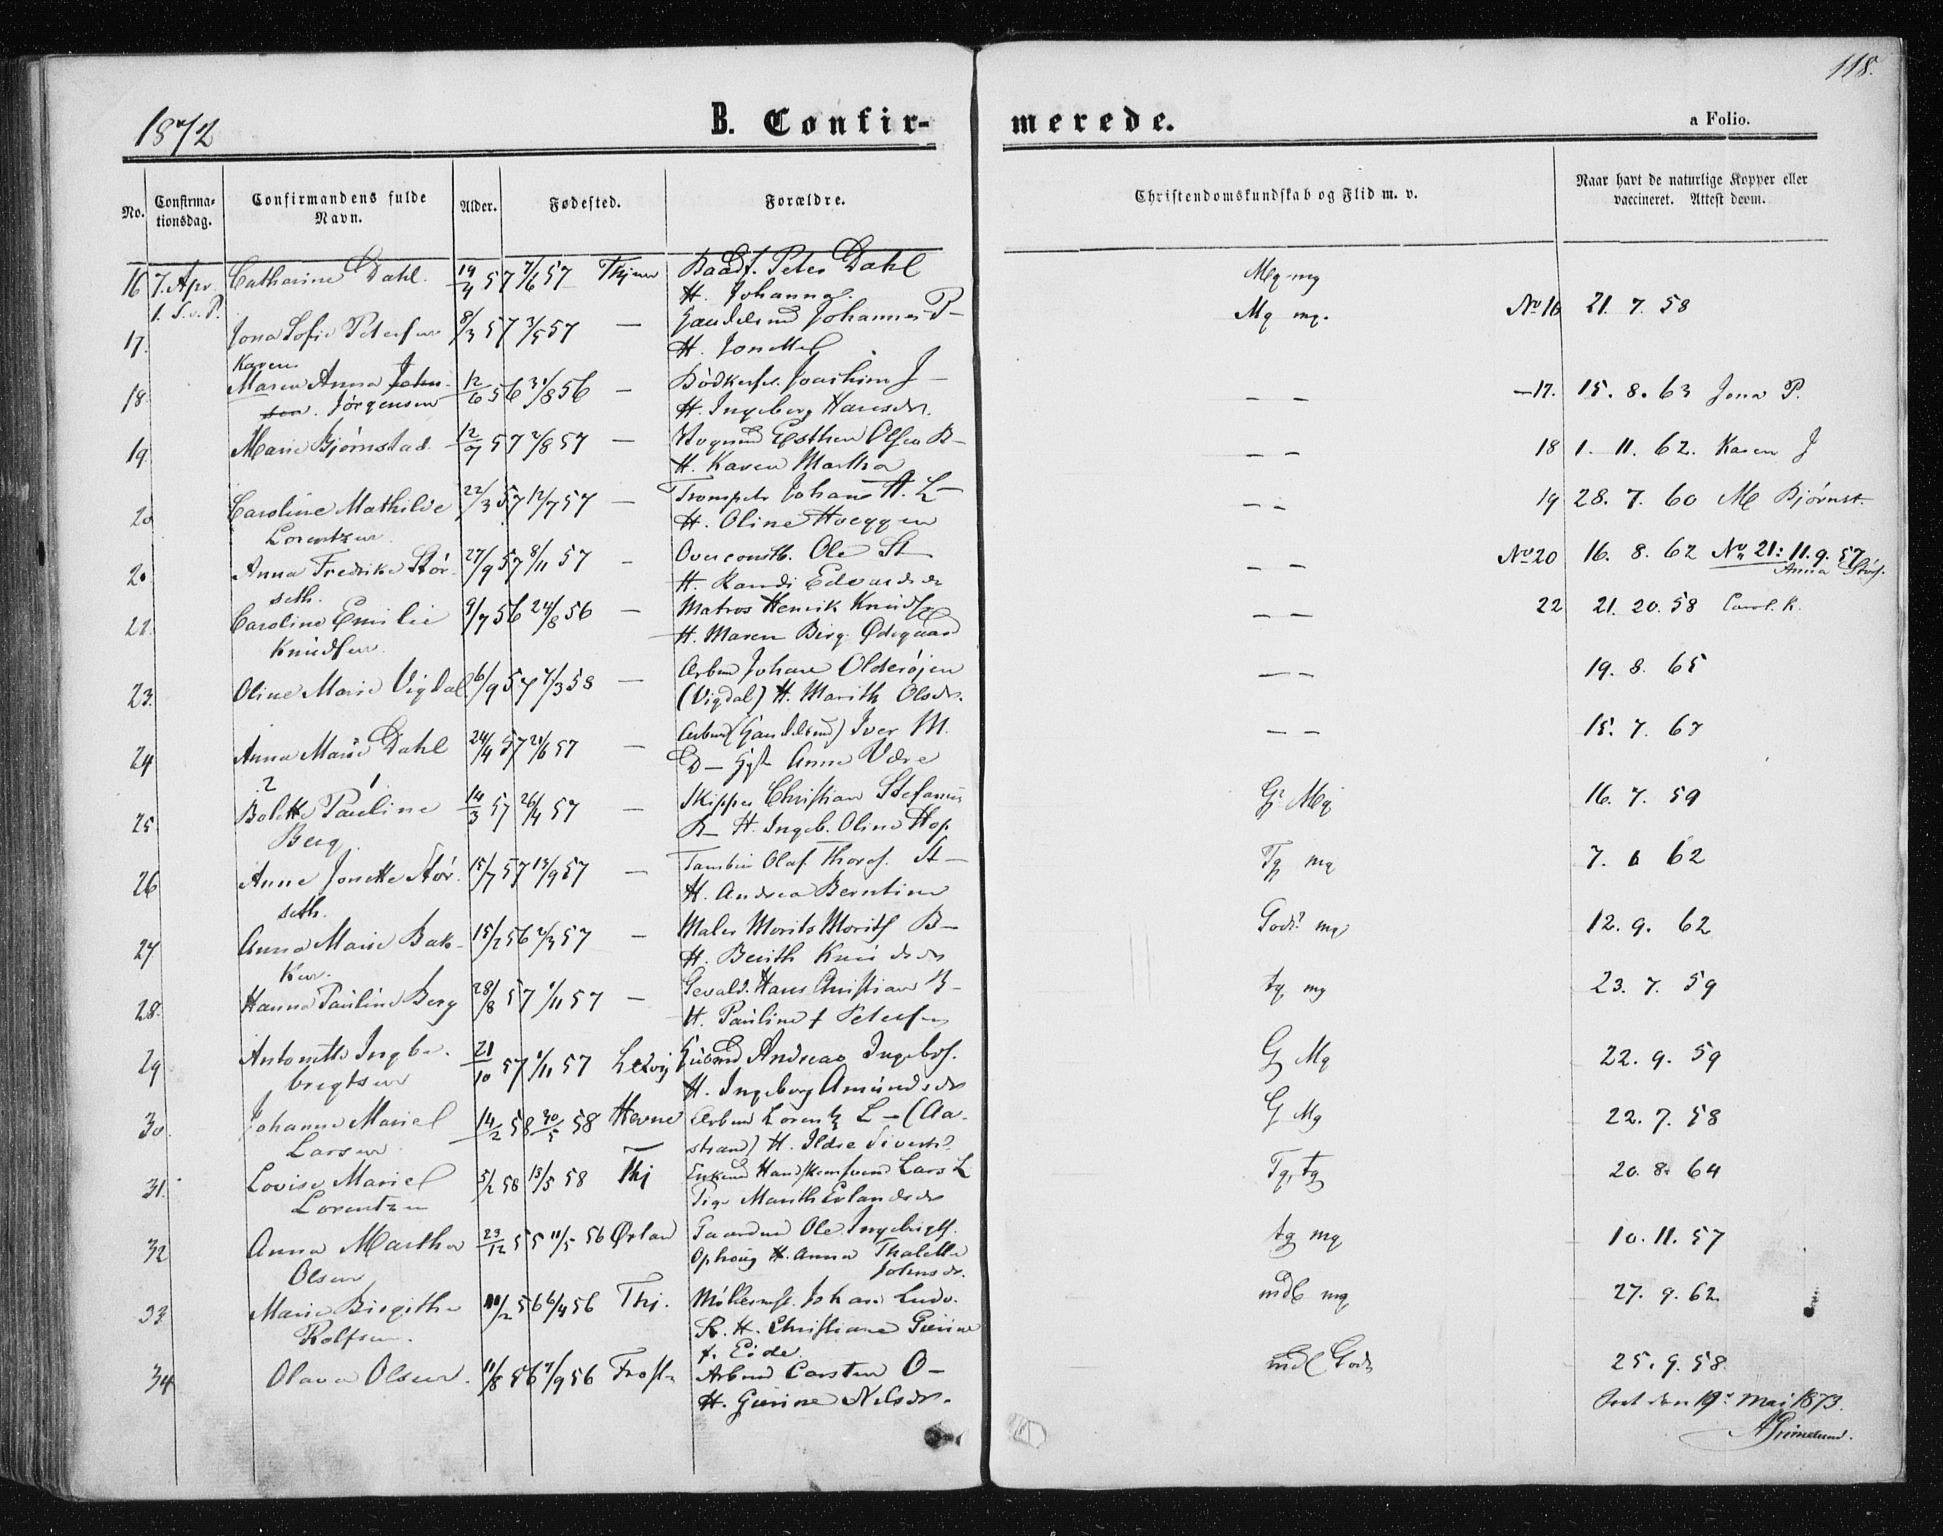 118.
1872
B. Confir-
merede.
a Folio.
No.
Confirma-
tionsdag.
Confirmandens fulde
Navn.
Alder.
Fødested.
Forældre.
Christendomskundskab og Flid m. v.
Naar havt de naturlige Kopper eller
vaccineret. Attest derom.
16 7. Apr. Catharine Dahl. 14/4 57 7/6 57 Peter Dahl Mg mg
H. Johanna
17. Jona Sofie Petersen 8/3 57 3/5 57 — Johannes P— Mg mg. No 16 21. 7. 58
H. Jonette
Karen
18. Maren Anna John-
sen. Jørgensen 12/6 56 31/8 56 — Joachim J— — — —17. 15. 8. 63 Jona P.
H. Ingeborg Hansdr.
19. Marie Bjørnstad 12/7 57 2/8 57 — Olsen B— — — 18 1. 11. 62. Karen J
H. Karen Martha
20 Caroline Mathilde 22/3 57 12/7 57 — Johan H. L— — — 19 28. 7. 60 M Bjørnst.
Lorentzen H. Oline Hoeggen
2. Anna Fredrike Stør- 27/9 57 8/11 57 — Overconstb. Ole St— — — No 20 16. 8. 62 No 21: 11. 9. 57
seth. H. Randi Edvardsdr Anna Størs.
22. Caroline Emilie 9/7 56 24/8 56 — Matros Henrik Knuds — — 22 21. 20. 58 Carol. K.
Knudsen. H. Maren Birg. Ødegaard
23. Oline Marie Vigdal 6/9 57 7/3 58 — Johan — — 19. 8. 65
(Vigdal) H. Marith Olsdr.
24 Anna Marie Dahl 24/4 57 21/6 57 — Iver M. — — 15. 7. 67
D— Anne
2 1
25. Bolette Pauline 14/3 57 26/4 57 — Skipper Christian Stefanus G. Mg 16. 7. 59
Berg. B— H. Ingeb. Oline Hop
26 Anne Jonette Stør- 15/7 57 13/9 57 — Olaf Thorsf. St— Tg mg 7. 6 62
seth. H. Andrea Berntine
27 Anna Marie Bak- 15/12 56 2/3 57 — Maler Morits Morits B— Gods mg 12. 9. 62
ken. H. Berith Knudsdr
28. Hanna Pauline Berg 28/8 57 1/11 57 — Hans Christian B— tg mg 23. 7. 59
H. Pauline f Petersen
29 Antonette Ingbe- 21/10 57 1/11 57 Andreas Ingebr. G Mg 22. 9. 59
brigtsen H. Ingeborg Amundsdr
30. Johanne Mariel 14/2 58 30/5 58 Hevne Arbmd Lorentz L—(Aa- G Mg 22. 7. 58
Larsen strand) H. Ildre Sivertsd
31. Lovise Mariel 5/2 58 13/5 58 Thj Lars L Tg, tg 20. 8. 64
Lorentzen Pige Marith Erlandsdr
32 Anna Martha 23/12 55 11/5 56 Ørlan Gaardmd Ole Ingebrigts. tg mg 10. 11. 57
Olsen Ophoug H. Anna Thalette
Johnsdr.
33 Marie Birgithe 10/2 56 6/4 56 Thj. Møllersv. Johan Ludv. mdl mg 27. 9. 62
Rolfsen. R. H. Christiane Gurine
f. Eide.
34 Olava Olsen. 11/8 56 7/9 56 Frost. Arbmd Carsten O— mdl Gods 25. 9. 58
H. Gurine Nilsdr.
den 19 Mai 1873.
AGrimelund.